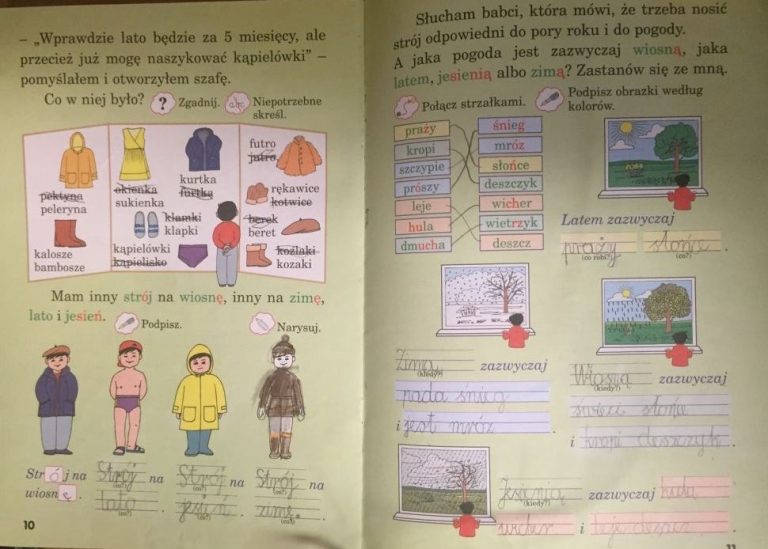 – „Wprawdzie lato będzie za 5 miesięcy, ale
przecież już mogę naszykować kąpielówki” –
pomyślałem i otworzyłem szafę.
Co w niej było? ? Zgadnij. abc Niepotrzebne
skreśl.
pektyna
peleryna
kalosze
bambosze
okienka
sukienka
kurtka
furtka
klamki
klapki
kąpielówki
kąpielisko
futro
jutro
rękawice
kotwice
berek
beret
koźlaki
kozaki
Mam inny strój na wiosnę, inny na zimę,
lato i jesień.
Podpisz.
Narysuj.
Strój na
wiosnę.
Strój na
(co?)
lato.
(co?)
Strój na
(co?)
jesień.
(co?)
Strój na
(co?)
zimę.
(co?)
10
Słucham babci, która mówi, że trzeba nosić
strój odpowiedni do pory roku i do pogody.
A jaka pogoda jest zazwyczaj wiosną, jaka
latem, jesienią albo zimą? Zastanów się ze mną.
Połącz strzałkami.
Podpisz obrazki według
kolorów.
praży
kropi
szczypie
prószy
leje
hula
dmucha
śnieg
mróz
słońce
deszczyk
wicher
wietrzyk
deszcz
Latem zazwyczaj
praży słońce.
(co robi?) (co?)
Zimą zazwyczaj
(kiedy?)
pada śnieg
i jest mróz.
Wiosną zazwyczaj
(kiedy?)
świeci słońce
i kropi deszczyk.
Jesienią zazwyczaj hula
(kiedy?)
wicher i leje deszcz.
11